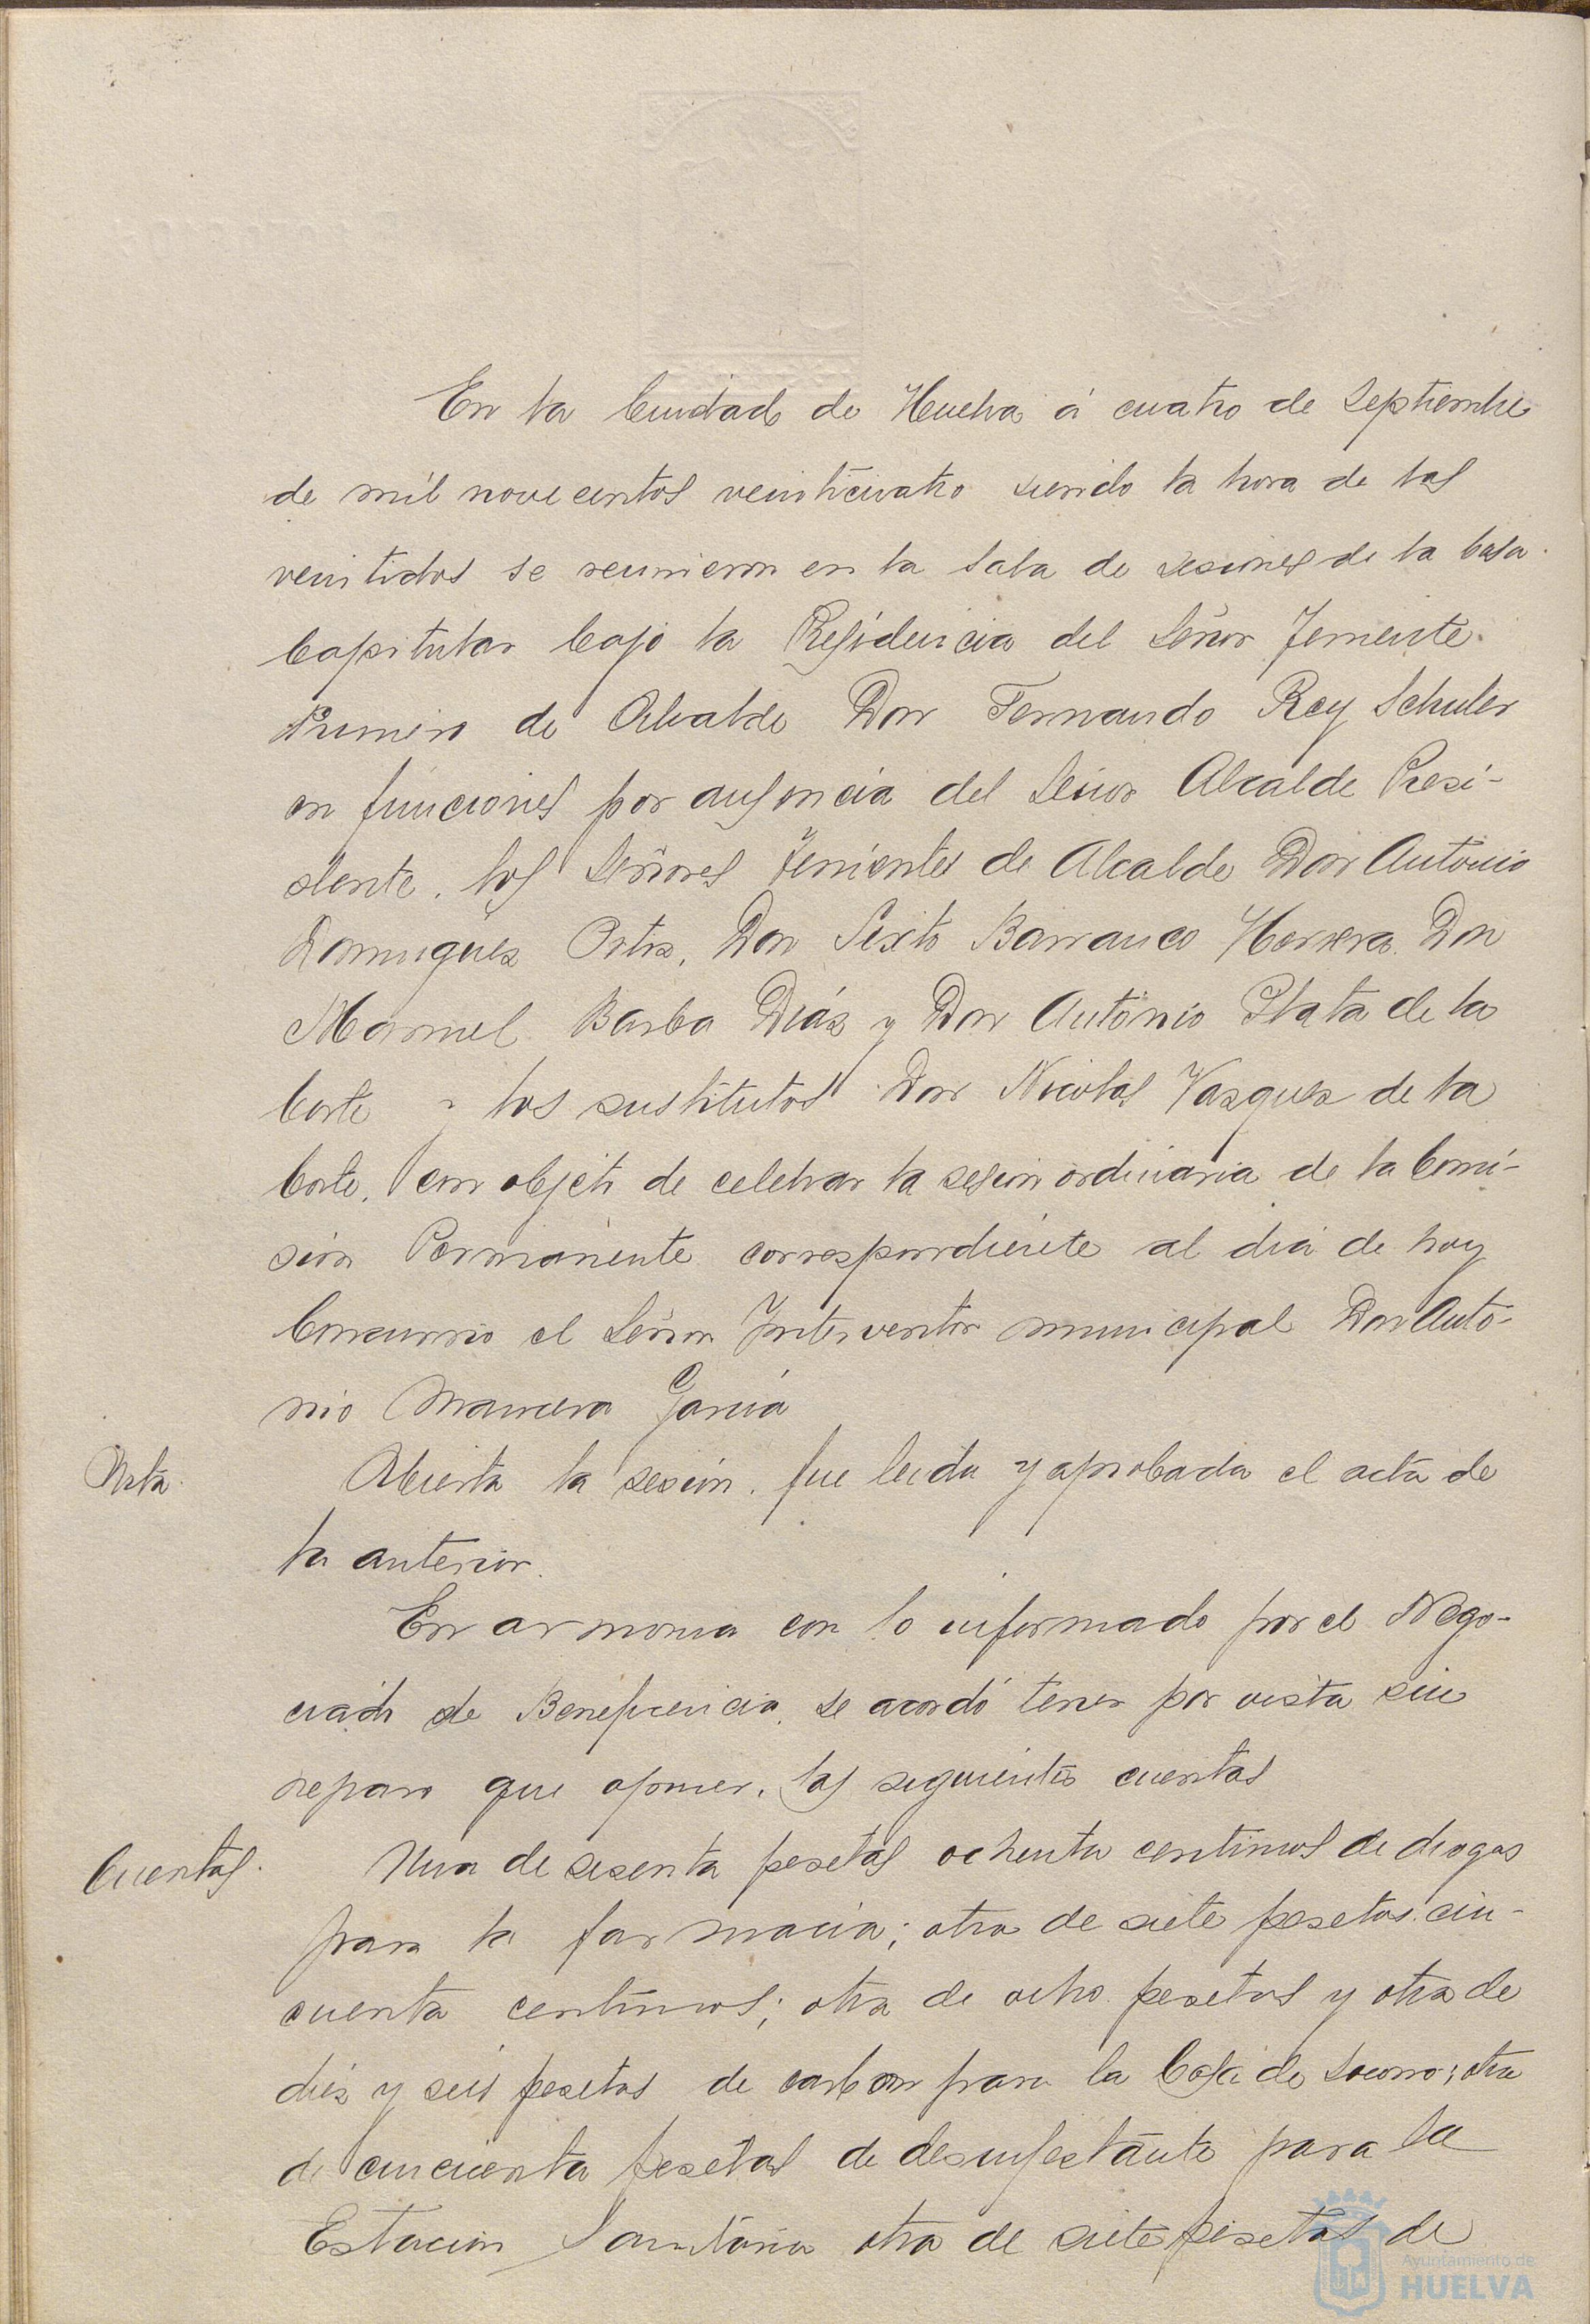 En la Ciudad de Huelva á cuatro de Septiembre
de mil novecientos veinticuatro siendo la hora de las
veintidos se reunieron en la Sala de sesiones de la Casa
Capitular bajo la Presidencia del Señor Teniente
Primero de Alcalde Don Fernando Rey Schuler
en funciones por ausencia del Señor Alcalde Presi-
dente. los Señores Tenientes de Alcalde Don Antonio
Dominguez Ortiz, Don Sixto Barranco Herrera. Don
Manuel Barba Diáz y Don Antonio Plata de la
Corte y los sustitutos Don Nicolas Vazquez de la
Corte, con objeto de celebrar la sesion ordinaria de la Comi-
sion Permanente correspondiente al dia de hoy
Concurrio el Señor Interventor municipal Don Anto-
nio Mancera García
Acta. Abierta la sesion. fue leida y aprobada el acta de
la anterior.
En armonia con lo informado por el Nego-
ciado de Beneficencia. se acordó tener por vista sin
reparo que oponer, las siguientes cuentas
Cuentas. Una de sesenta pesetas ochenta centimos de drogas
para la farmacia; otra de siete pesetas cin-
cuenta centimos; otra de ocho pesetas y otra de
diez y seis pesetas de carbon para la Casa de Socorro; otra
de cincuenta pesetas de desinfestante para la
Estacion Sanitaria otra de siete pesetas de
Ayuntamiento de
HUELVA